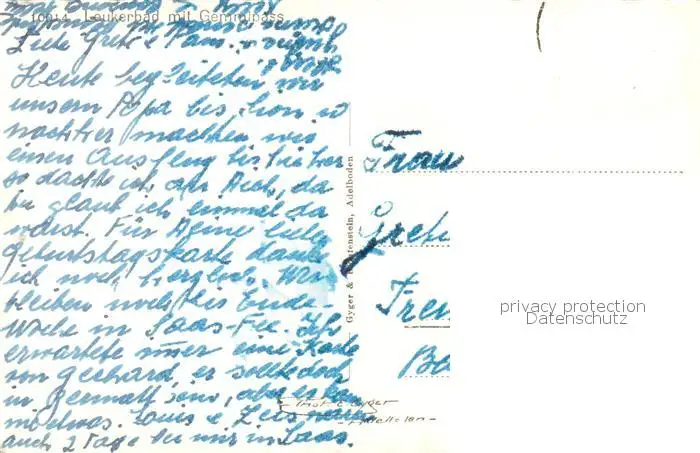 10014 Leukerbad mit Gemmipass
Liebe Grete &
Heute begleiteten wir
unsern Papa bis Sion u
nachher machten wir
einen Ausflug bis hieher
so dachte ich an Dich, da
Du glaub ich einmal da
warst. Für Deine liebe
Geburtstagskarte danke
ich noch herzlich. Wir
bleiben noch bis Ende
Woche in Saas-Fee. Ich
erwartete immer eine Karte
von Gerhard, er sollte doch
in Zermatt sein, aber es kam
nie etwas. Louis &
auch 2 Tage bei mir in Saas.
Gyger & Adelboden
Phot. E. Gyger
- Adelboden -
Frau
Grete
privacy protection
Datenschutz